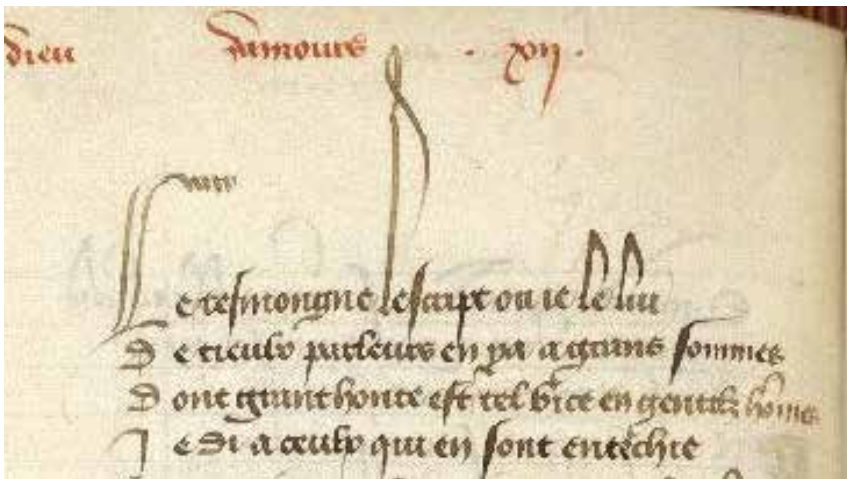 dieu damours . xij .
Le tesmongne lescript ou ie le lui
De ceulx parleurs en ya a grans sommes
Dont grant honte est tel vice en gentilz hõmes
Je di a ceulx qui en sont entechie